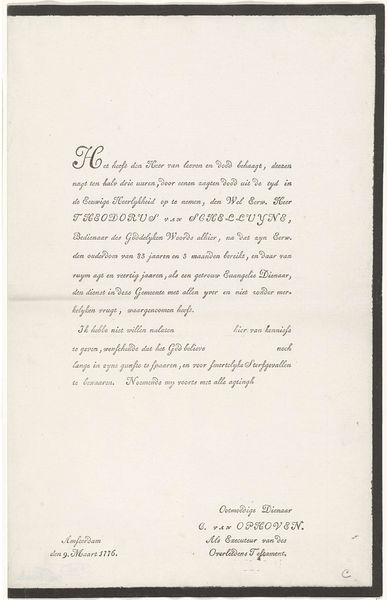 Het heeft den Heer van leeven en dood behaagt, deezen
nagt ten half drie uuren, door eenen zagten dood uit de tyd in
de Eeuwige Heerlykheid op te nemen, den Wel Eerw. Heer
THEODORUS VAN SCHELLUYNE,
Bedienaar des Goddelyken Woords alhier, na dat zyn Eerw.
den ouderdom van 83 jaaren en 3 maanden bereikt, en daar van
ruym agt en veertig jaaren, als een getrouw Euangelie Dienaar,
den dienst in deze Gemeente met allen yver en niet zonder mer-
kelyken vrugt, waargenomen heeft.
Ik hebbe niet willen nalaten hier van kennisse
te geven, wenschende dat het God believe noch
lange in zyne gunste te spaaren, en voor smertelyke Sterfgevallen
te bewaaren. Noemende my voorts met alle agtingh
Ootmoedige Dienaar
C. VAN OPHOVEN.
Als Executeur van des
Overleedens Testament.
Amsterdam
den 9. Maart 1776.
C